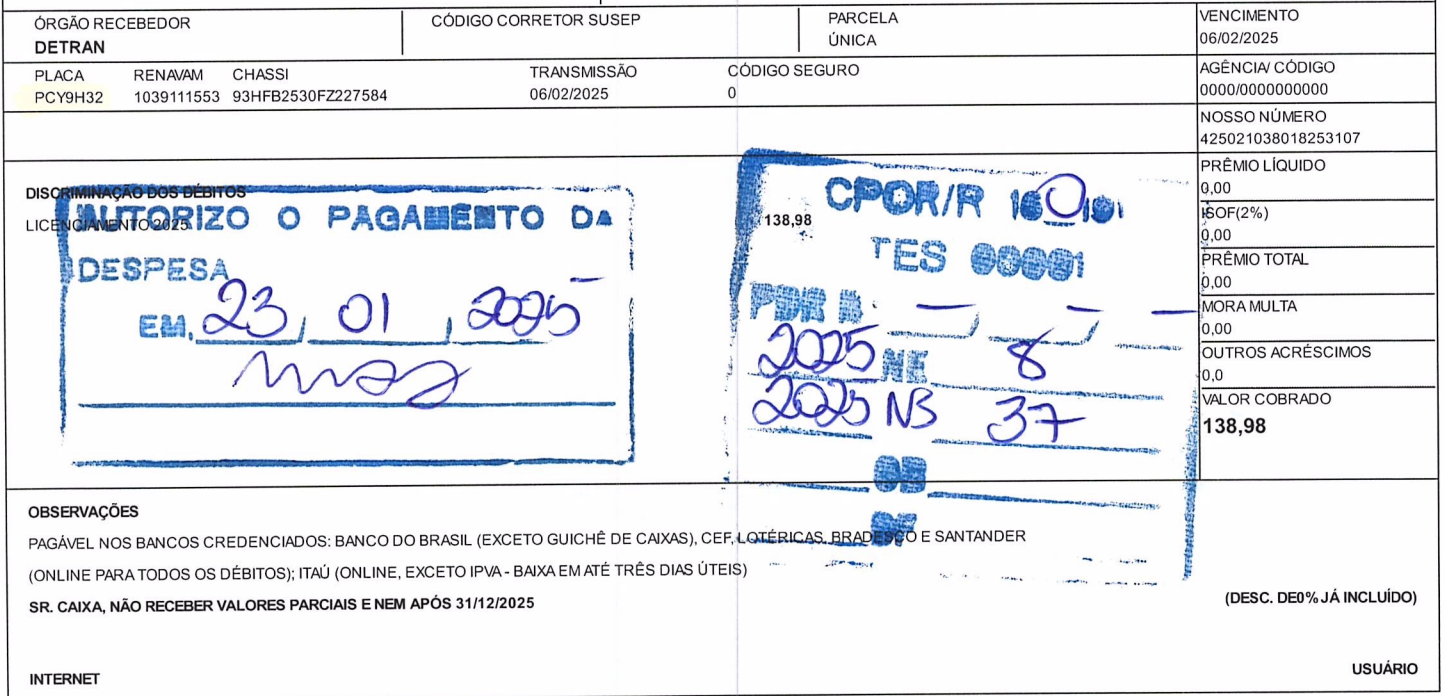 ÓRGÃO RECEBEDOR CÓDIGO CORRETOR SUSEP PARCELA VENCIMENTO
DETRAN ÚNICA 06/02/2025
PLACA RENAVAM CHASSI TRANSMISSÃO CÓDIGO SEGURO AGÊNCIA/ CÓDIGO
PCY9H32 1039111553 93HFB2530FZ227584 06/02/2025 0 0000/0000000000
NOSSO NÚMERO
425021038018253107
DISCRIMINAÇÃO DOS DÉBITOS
LICENCIAMENTO 2025 138,98
AUTORIZO O PAGAMENTO DA
DESPESA
EM, 23, 01, 2025
CPOR/R
TES 00001
2025 NE 8
2025 NB 37
OB
PRÊMIO LÍQUIDO
0,00
ISOF(2%)
0,00
PRÊMIO TOTAL
0,00
MORA MULTA
0,00
OUTROS ACRÉSCIMOS
0,0
VALOR COBRADO
138,98
OBSERVAÇÕES
PAGÁVEL NOS BANCOS CREDENCIADOS: BANCO DO BRASIL (EXCETO GUICHÊ DE CAIXAS), CEF, LOTÉRICAS, BRADESCO E SANTANDER
(ONLINE PARA TODOS OS DÉBITOS); ITAÚ (ONLINE, EXCETO IPVA - BAIXA EM ATÉ TRÊS DIAS ÚTEIS)
SR. CAIXA, NÃO RECEBER VALORES PARCIAIS E NEM APÓS 31/12/2025 (DESC. DE0% JÁ INCLUÍDO)
INTERNET USUÁRIO